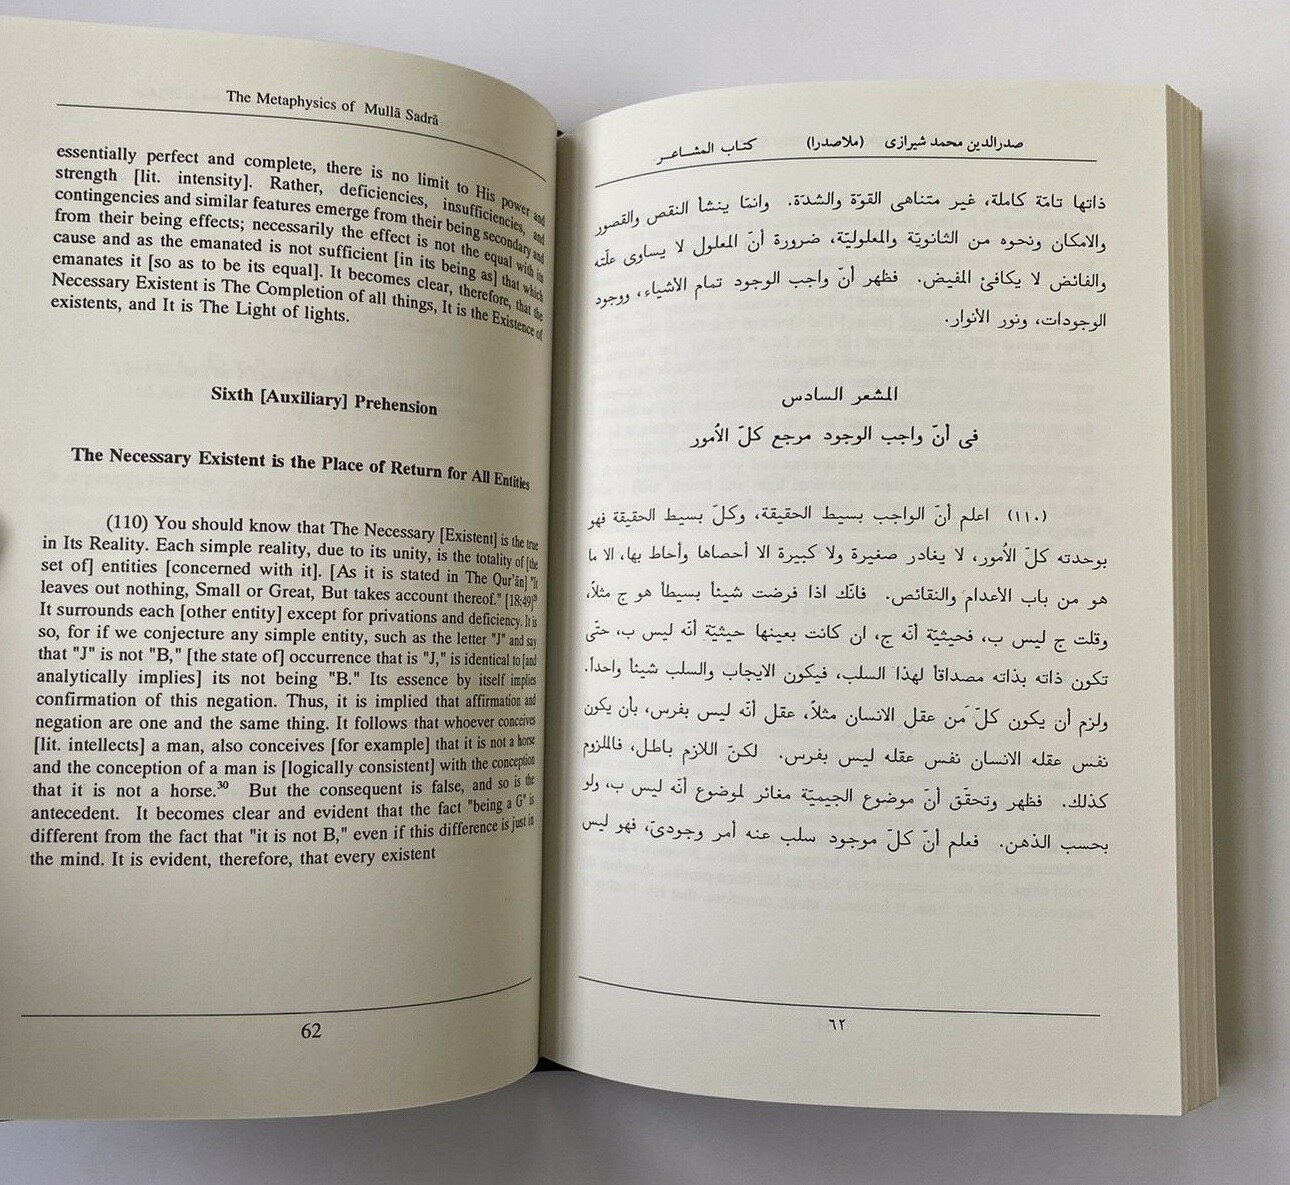 The Metaphysics of Mullā Sadrā
essentially perfect and complete, there is no limit to His power and
strength [lit. intensity]. Rather, deficiencies, insufficiencies, and
contingencies and similar features emerge from their being secondary and
from their being effects; necessarily the effect is not the equal with its
cause and as the emanated is not sufficient [in its being as] that which
emanates it [so as to be its equal]. It becomes clear, therefore, that the
Necessary Existent is The Completion of all things, It is the Existence of
existents, and It is The Light of lights.
Sixth [Auxiliary] Prehension
The Necessary Existent is the Place of Return for All Entities
(110) You should know that The Necessary [Existent] is the true
in Its Reality. Each simple reality, due to its unity, is the totality of [the
set of] entities [concerned with it]. [As it is stated in The Qur'ān] "It
leaves out nothing, Small or Great, But takes account thereof." [18:49]²⁹
It surrounds each [other entity] except for privations and deficiency. It is
so, for if we conjecture any simple entity, such as the letter "J" and say
that "J" is not "B," [the state of] occurrence that is "J," is identical to [and
analytically implies] its not being "B." Its essence by itself implies
confirmation of this negation. Thus, it is implied that affirmation and
negation are one and the same thing. It follows that whoever conceives
[lit. intellects] a man, also conceives [for example] that it is not a horse
and the conception of a man is [logically consistent] with the conception
that it is not a horse.³⁰ But the consequent is false, and so is the
antecedent. It becomes clear and evident that the fact "being a G" is
different from the fact that "it is not B," even if this difference is just in
the mind. It is evident, therefore, that every existent
62
صدرالدین محمد شیرازی (ملاصدرا) كتاب المشاعر
ذاتها تامّة كاملة، غير متناهى القوّة والشدّة. وانمّا ينشأ النقص والقصور
والامكان ونحوه من الثانويّة والمعلوليّة، ضرورة أنّ المعلول لا يساوى علّته
والفائض لا يكافئ المفيض. فظهر أنّ واجب الوجود تمام الأشياء، ووجود
الوجودات، ونور الأنوار.
المشعر السادس
فى أنّ واجب الوجود مرجع كلّ الأمور
(١١٠) اعلم أنّ الواجب بسيط الحقيقة، وكلّ بسيط الحقيقة فهو
بوحدته كلّ الأمور، لا يغادر صغيرة ولا كبيرة الا أحصاها وأحاط بها، الا ما
هو من باب الأعدام والنقائص. فانّك اذا فرضت شيئاً بسيطاً هو ج مثلاً،
وقلت ج ليس ب، فحيثيّة أنّه ج، ان كانت بعينها حيثيّة أنّه ليس ب، حتّى
تكون ذاته بذاته مصداقاً لهذا السلب، فيكون الايجاب والسلب شيئاً واحداً.
ولزم أن يكون كلّ مَن عقل الانسان مثلاً، عقل أنّه ليس بفرس، بأن يكون
نفس عقله الانسان نفس عقله ليس بفرس. لكنّ اللازم باطل، فالملزوم
كذلك. فظهر وتحقّق أنّ موضوع الجيميّة مغائر لموضوع أنّه ليس ب، ولو
بحسب الذهن. فعلم أنّ كلّ موجود سلب عنه أمر وجودىّ، فهو ليس
٦٢